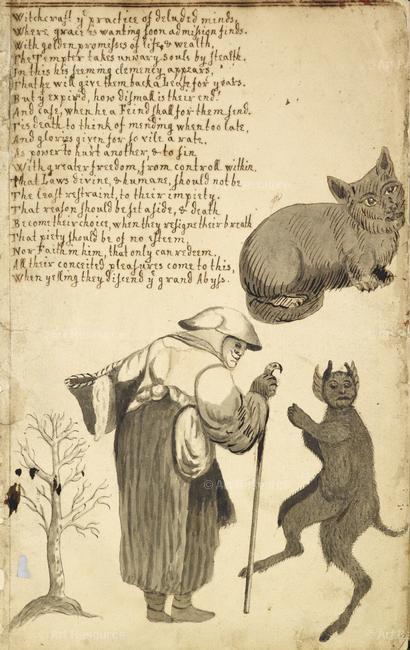 Witchcraft yͤ practice of deluded minds,
Where grace is wanting soon admission finds.
With golden promisses of life, & wealth,
The Tempter takes unwary souls by stealth.
In this his seeming clemency appears,
That he will give them back a Lease for years.
But yͭ expir'd, how dismall is their end.
And case, when he a Feind shall for them send.
T'is death to think of mending when too late,
And glories given for so vile a rate,
As power to hurt another, & to sin
With greater freedom, from controll within.
That Laws divine, & humane, should not be
The least restraint, to their impiety.
That reason should be set aside, & death
Become their choice, when they resigne their breath
That piety should be of no esteem
Nor Faith in him, that only can redeem.
All their conceited pleasures come to this,
When yelling they discend yͤ grand Abyss.
© Art Resource
© Art Resource